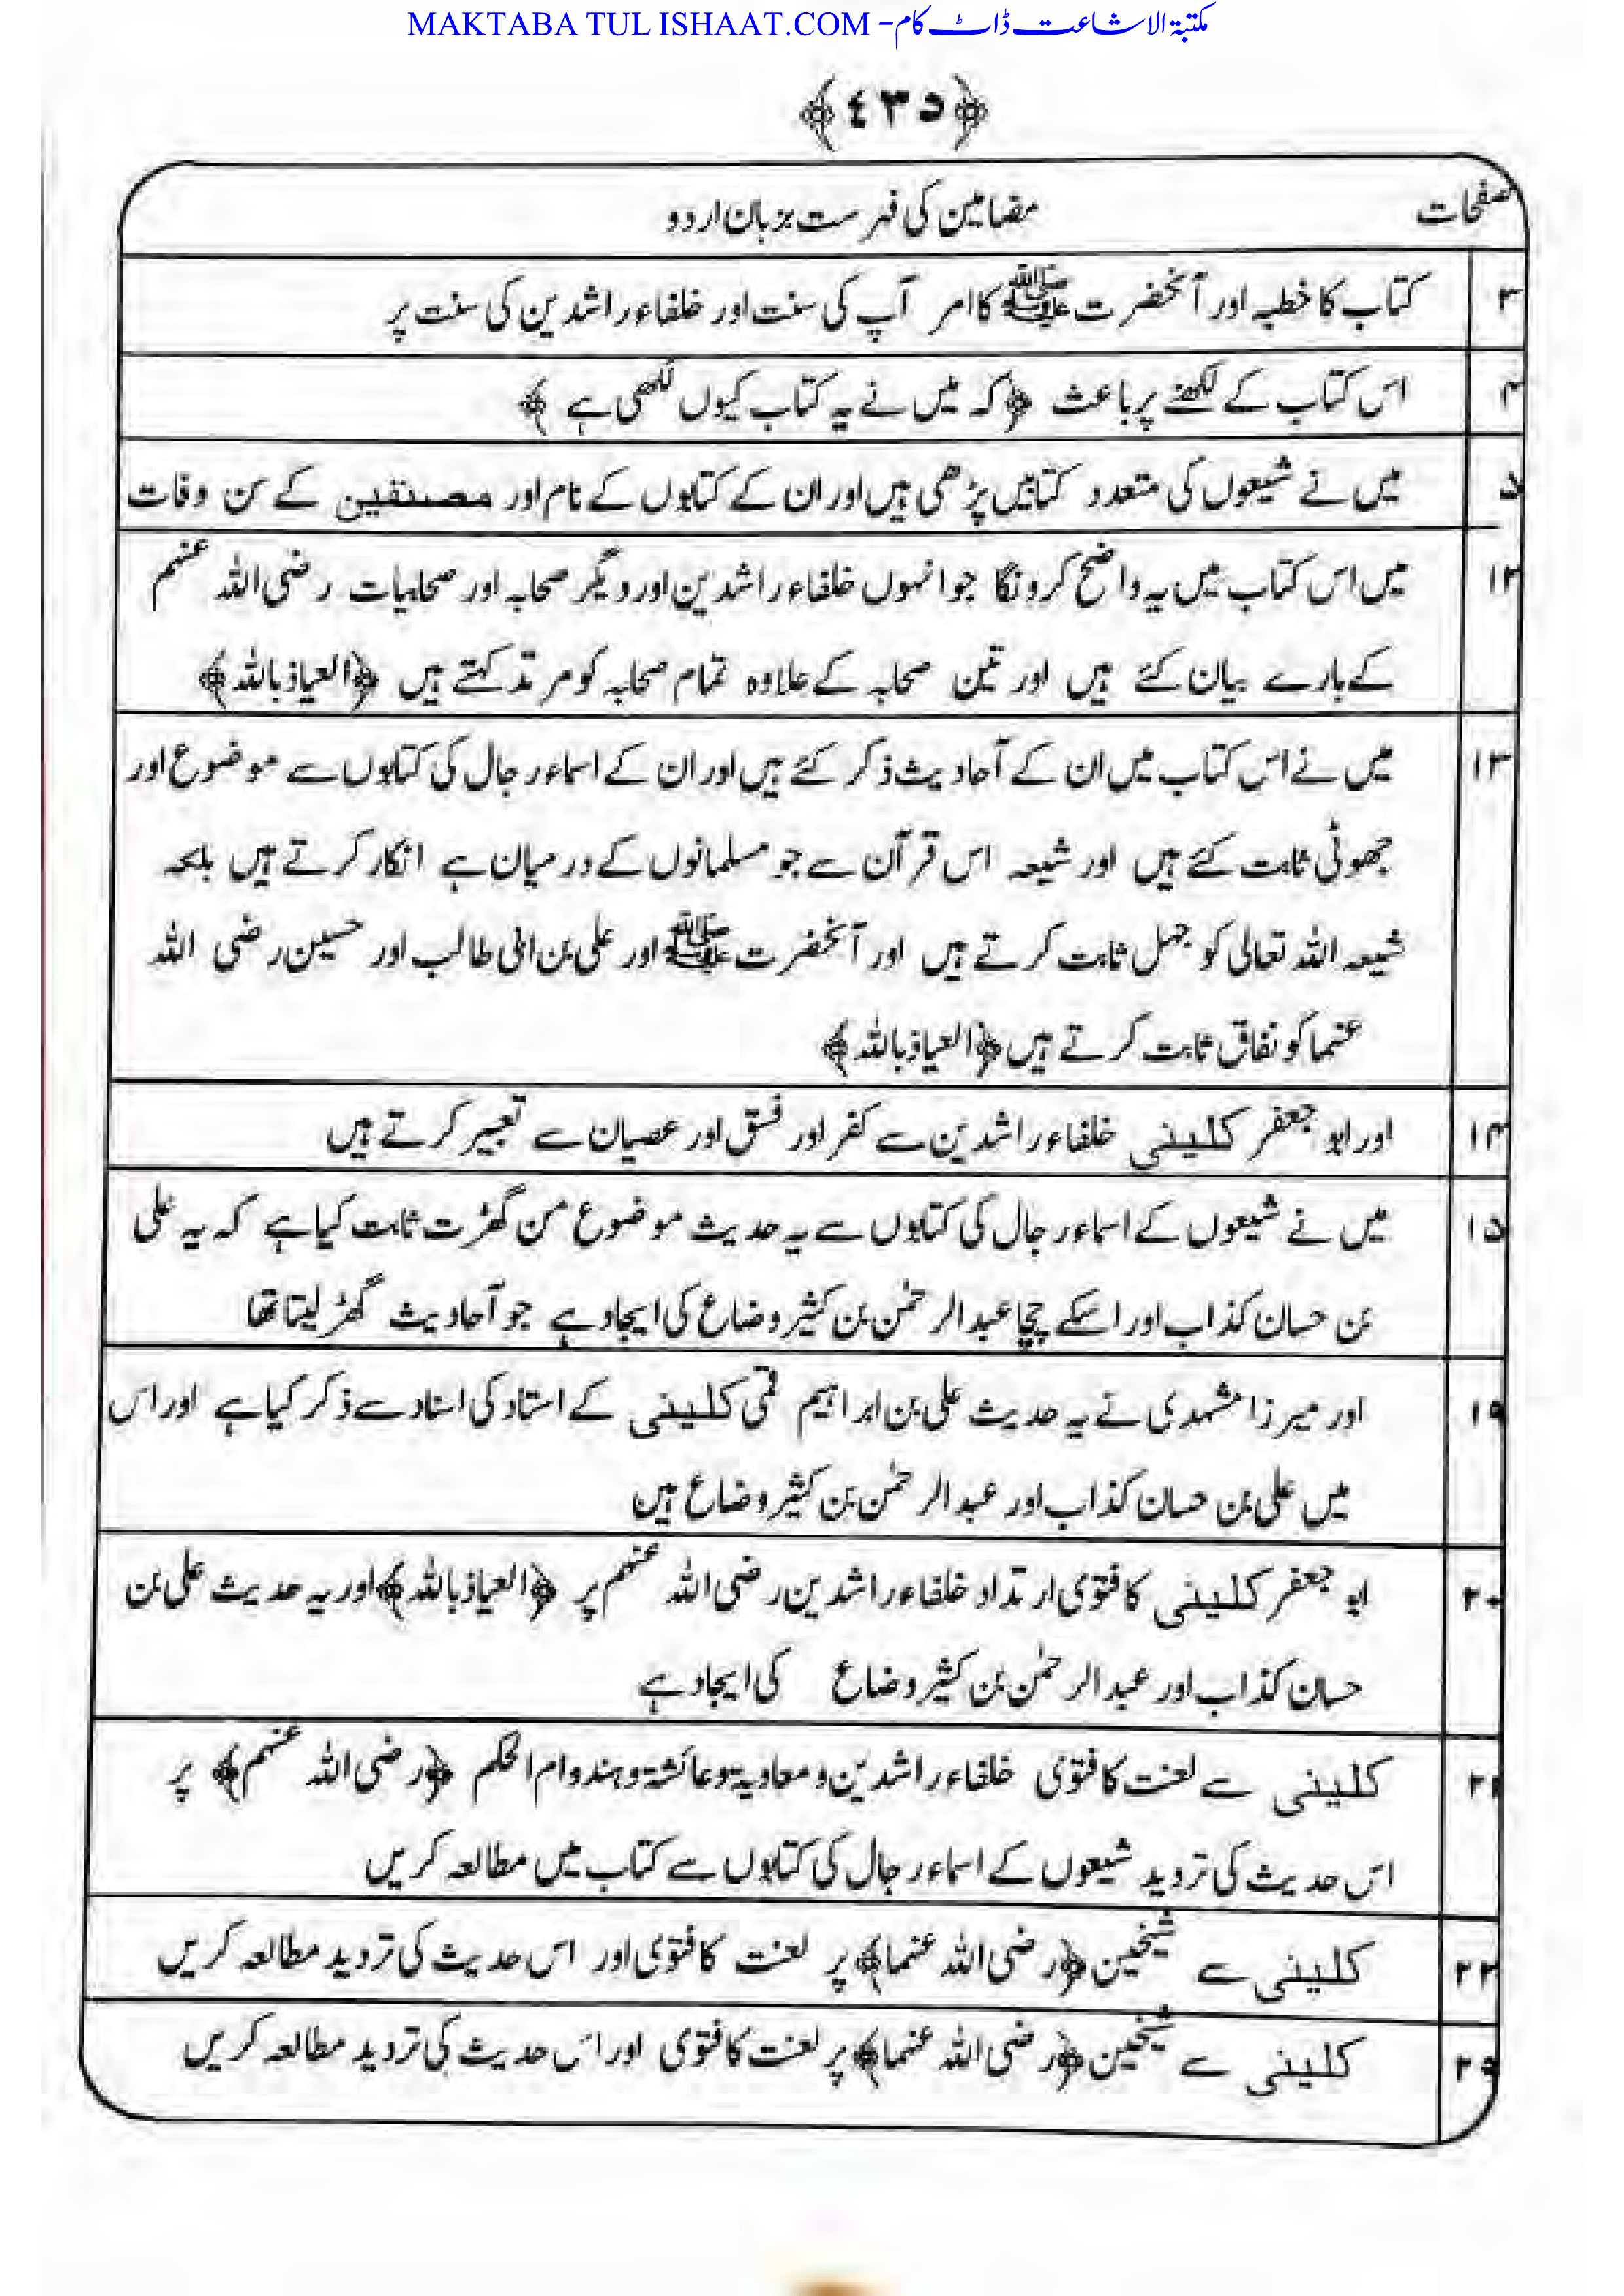 MAKTABA TUL ISHAAT.COM - مکتبۃ الاشاعت ڈاٹ کام
﴿٤٣٥﴾
صفحات مضامین کی فہرست بزبان اردو
٣ کتاب کا خطبہ اور آنحضرت ﷺ کا امر آپ کی سنت اور خلفاء راشدین کی سنت پر
۴ اس کتاب کے لکھنے پر باعث ﴿کہ میں نے یہ کتاب کیوں لکھی ہے﴾
۵ میں نے شیعوں کی متعدد کتابیں پڑھی ہیں اور ان کے کتابوں کے نام اور مصنفین کے سن وفات
۱۲ میں اس کتاب میں یہ واضح کرونگا جو انہوں خلفاء راشدین اور دیگر صحابہ اور صحابیات رضی اللہ عنہم
کے بارے بیان کئے ہیں اور تین صحابہ کے علاوہ تمام صحابہ کو مرتد کہتے ہیں ﴿العیاذ باللہ﴾
۱۳ میں نے اس کتاب میں ان کے آحادیث ذکر کئے ہیں اور ان کے اسماء رجال کی کتابوں سے موضوع اور
جھوٹی ثابت کئے ہیں اور شیعہ اس قرآن سے جو مسلمانوں کے درمیان ہے انکار کرتے ہیں بلکہ
شیعہ اللہ تعالی کو جہل ثابت کرتے ہیں اور آنحضرت ﷺ اور علی بن ابی طالب اور حسین رضی اللہ
عنہما کو نفاق ثابت کرتے ہیں ﴿العیاذ باللہ﴾
۱۴ اور ابو جعفر کلینی خلفاء راشدین سے کفر اور فسق اور عصیان سے تعبیر کرتے ہیں
۱۵ میں نے شیعوں کے اسماء رجال کی کتابوں سے یہ حدیث موضوع من گھڑت ثابت کیا ہے کہ یہ علی
بن حسان کذاب اور اسکے چچا عبد الرحمٰن بن کثیر وضاع کی ایجاد ہے جو آحادیث گھڑ لیتا تھا
۱۹ اور میرزا مشہدی نے یہ حدیث علی بن ابراہیم قمی کلینی کے استاد کی اسناد سے ذکر کیا ہے اور اس
میں علی بن حسان کذاب اور عبد الرحمٰن بن کثیر وضاع ہیں
۲۰ ابو جعفر کلینی کا فتوی ارتداد خلفاء راشدین رضی اللہ عنہم پر ﴿العیاذ باللہ﴾ اور یہ حدیث علی بن
حسان کذاب اور عبد الرحمٰن بن کثیر وضاع کی ایجاد ہے
۲۱ کلینی سے لعنت کا فتوی خلفاء راشدین و معاویۃ و عائشۃ و ہند و ام الحکم ﴿رضی اللہ عنہم﴾ پر
اس حدیث کی تردید شیعوں کے اسماء رجال کی کتابوں سے کتاب میں مطالعہ کریں
۲۲ کلینی سے شیخین ﴿رضی اللہ عنہما﴾ پر لعنت کا فتوی اور اس حدیث کی تردید مطالعہ کریں
کلینی سے شیخین ﴿رضی اللہ عنہما﴾ پر لعنت کا فتوی اور اس حدیث کی تردید مطالعہ کریں